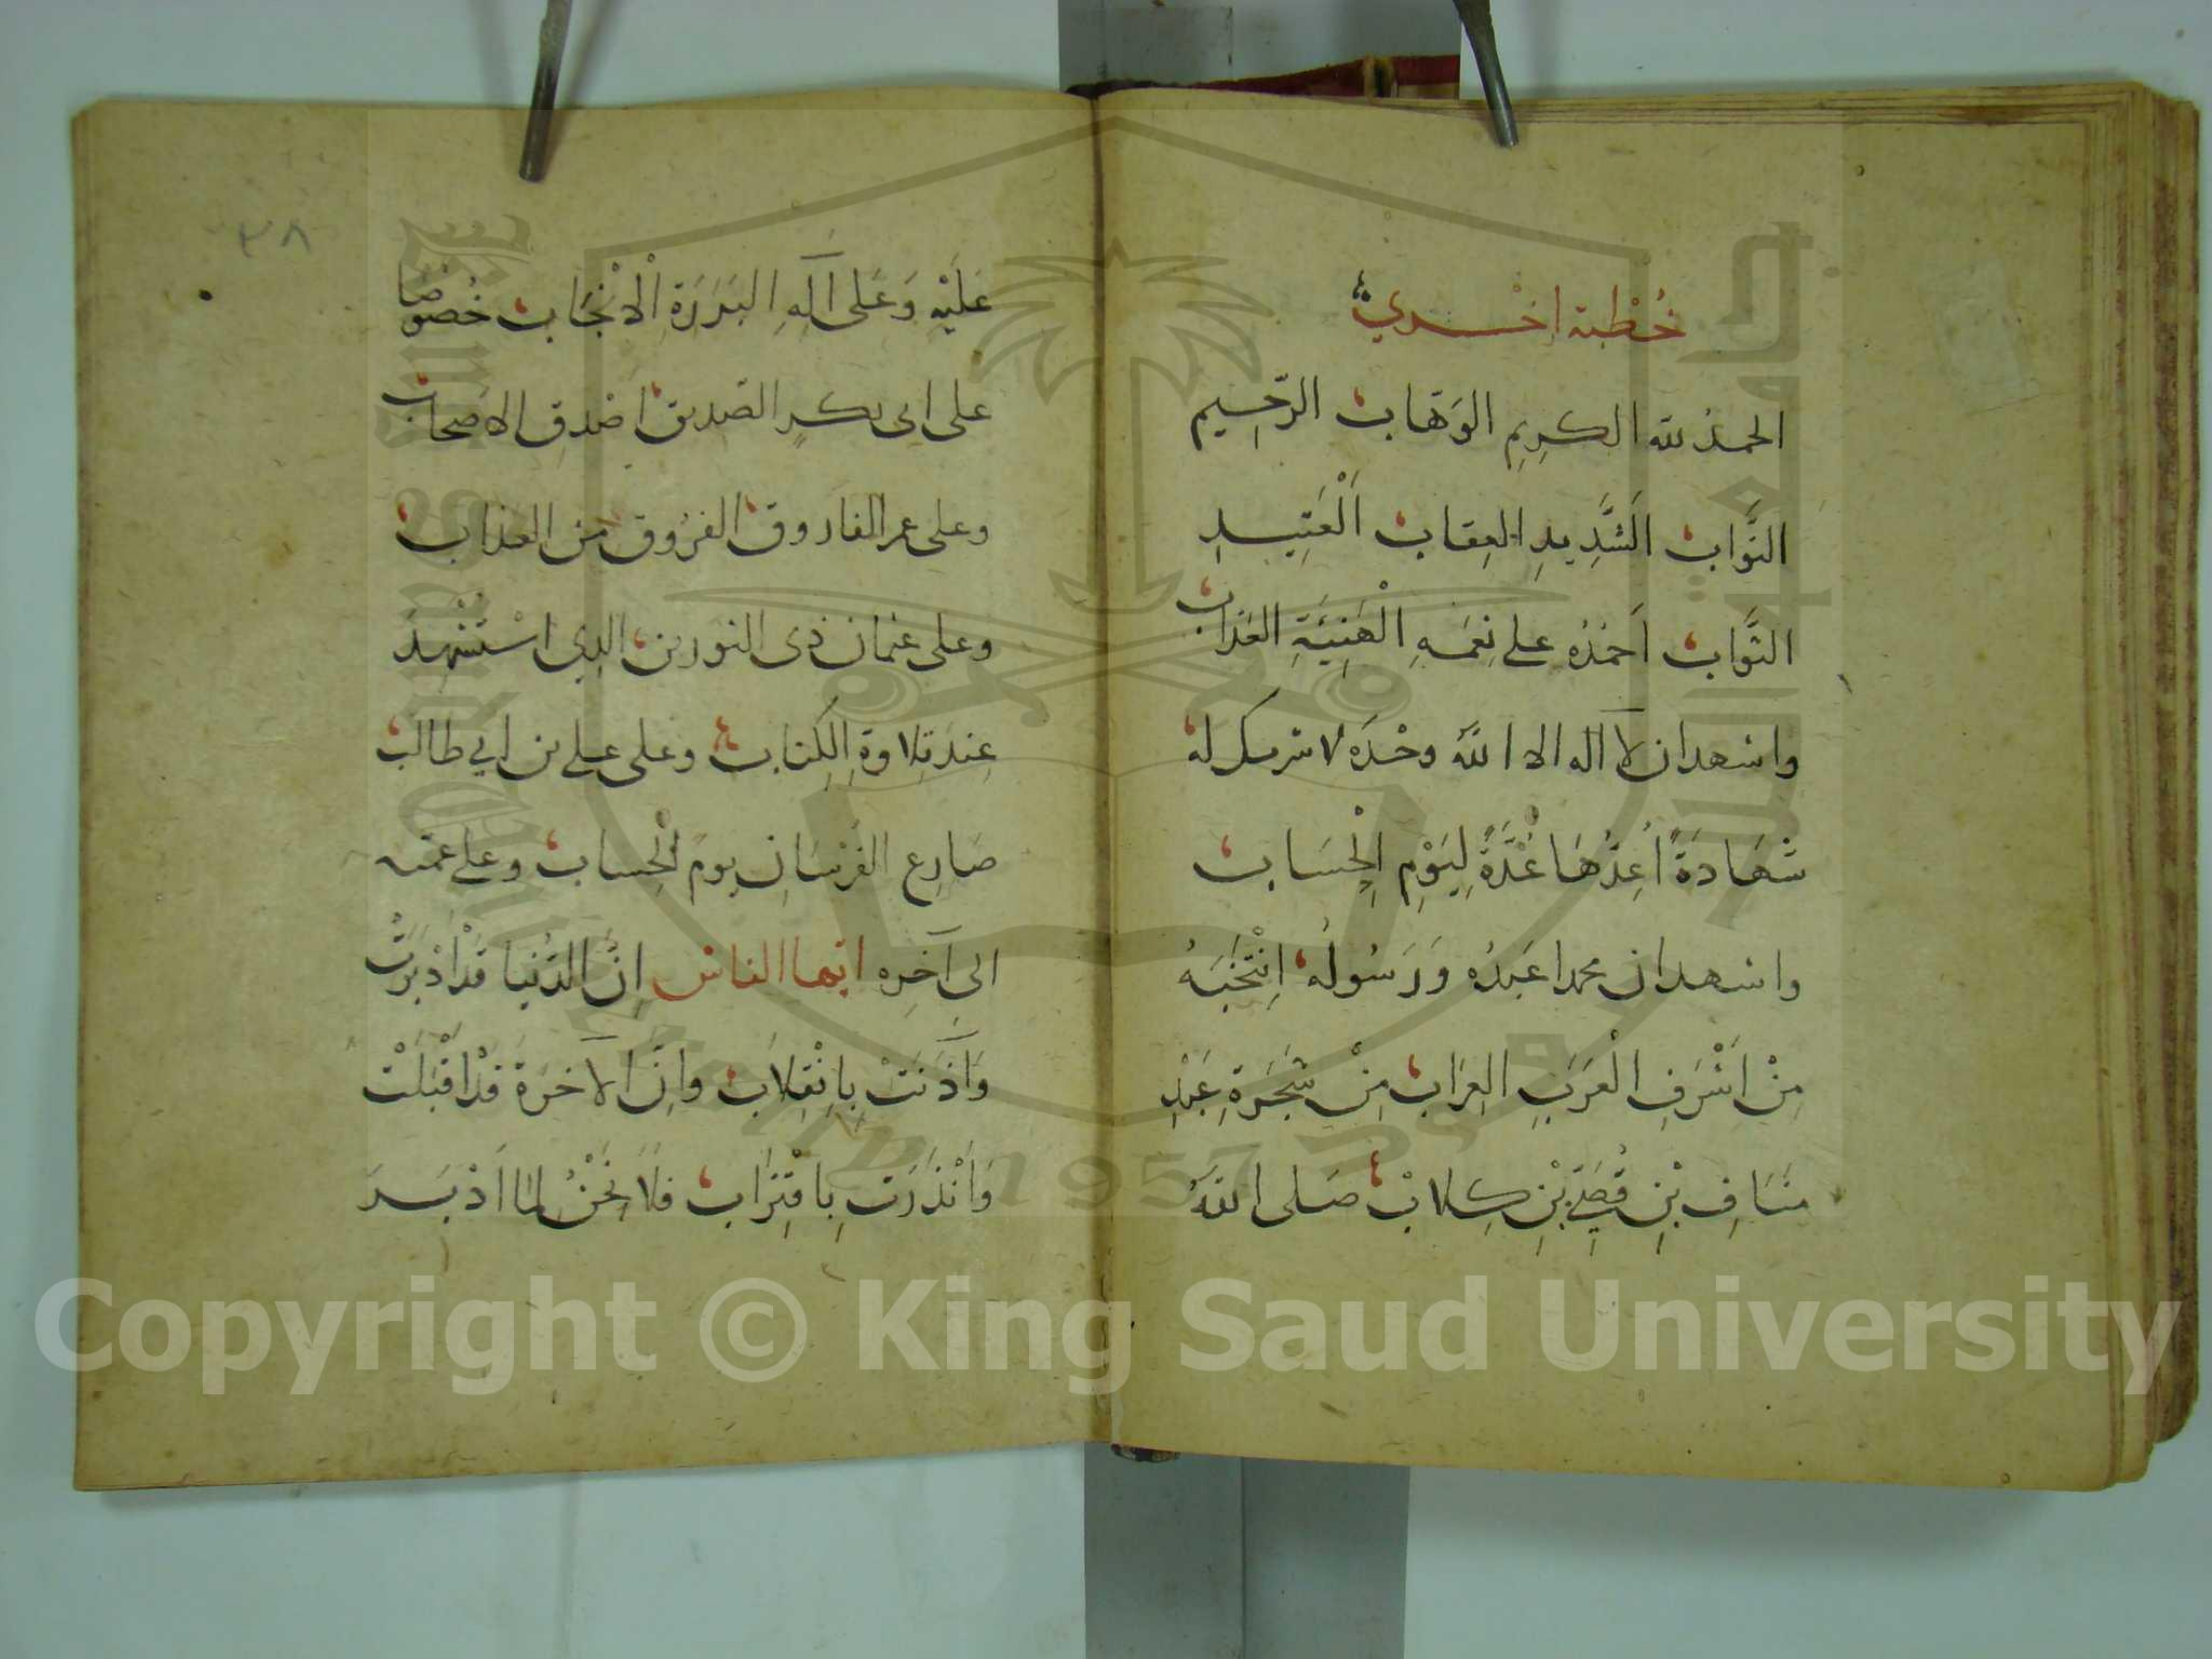 خُطْبة اخْرى
الحمد لله الكريم الوَهّاب الرّحيم
التَّواب الشَّدِيدِ العِقاب الْعَتِيدِ
الثَّواب اَحْمَدُه على نِعَمِهِ الْهَنِيَّةِ العَذاب
واشهد ان لا اله الا الله وحْدَه لا شريك له
شَهَادَةً اُعِدُّهَا عُدَّةً لِيَوْمِ الْحِسَاب
واشهد ان محمدا عَبدُه وَرَسُولُه اِنْتَخَبَهُ
مِنْ اَشْرَفِ الْعَرَبِ العِرَاب مِنْ شَجَرَةِ عَبْدِ
مَنَافِ بْنِ قُصَيِّ بْنِ كِلابْ صَلى اللهُ
٣٨
عَلَيْهِ وَعَلى آلِهِ البَرَرَةِ الْاَنْجَاب خُصُوصًا
على ابى بكرٍ الصّديق اصْدقِ الاصحاب
وعلى عمر الفاروق الفرُوق من العذاب
وعلى عثمان ذى النورين الذِي اسْتُشْهِدَ
عِندَ تِلاوةِ الكِتاب وعلى علي بن ابي طالب
صَارِعِ الفُرْسَانِ يومَ الْحِساب وعلى عمّيه
الى آخِرِه ايّها الناس اِنَّ الدُّنيا قَدْ اَدْبَرَتْ
وَآذَنَتْ بِانْقِلاب واِنَّ الآخرَةَ قَدْ اَقْبَلَتْ
وَاَنْذَرَت بِاقْتِرَاب فَلا نَحْنُ لِمَا اَدْبَرَ
Copyright © King Saud University
1957